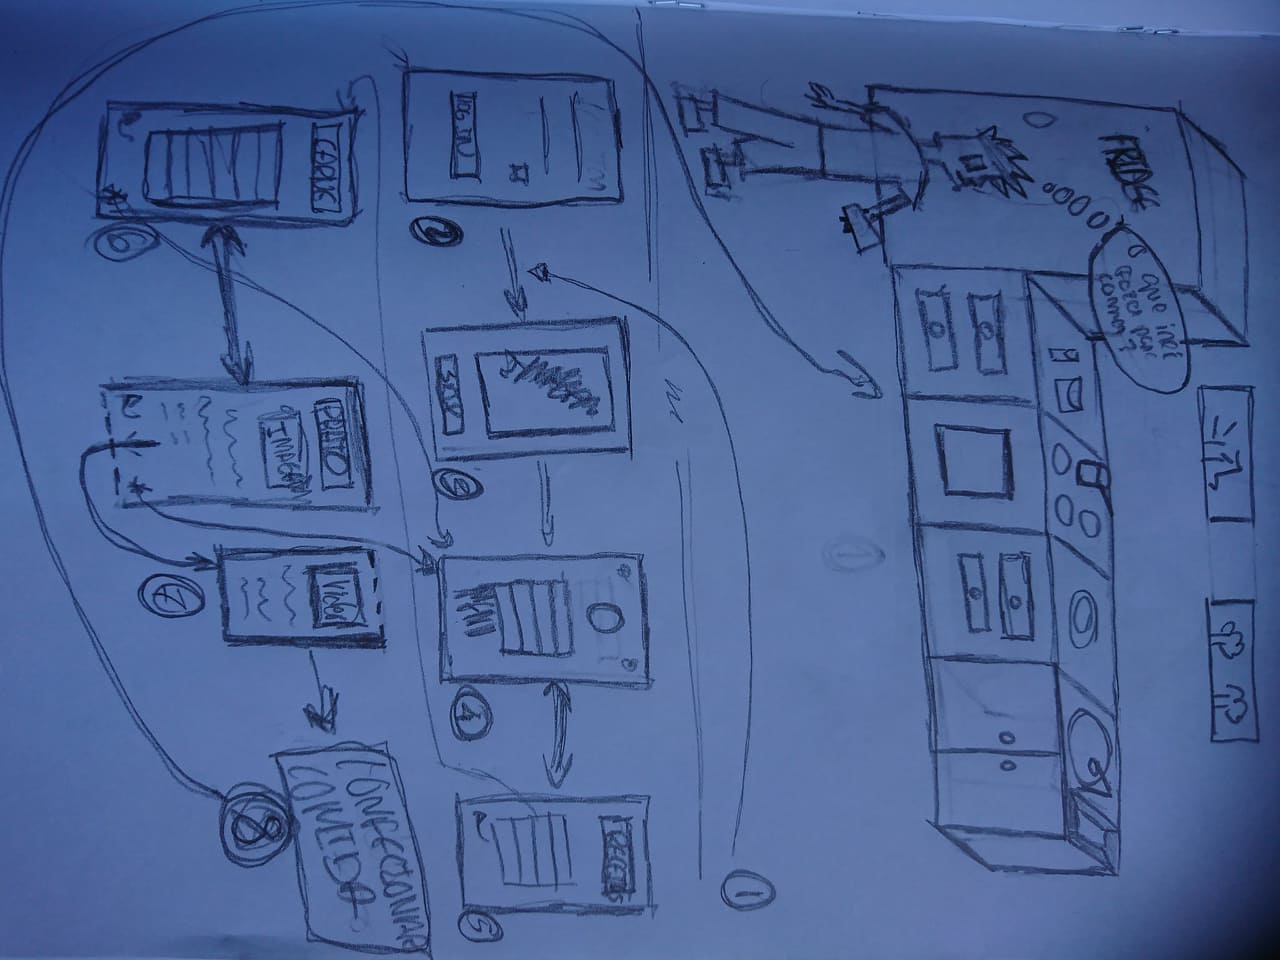 FRIDGE
O que irei
fazer para
comer?
1
1
LOG IN
2
IMAGEM
SKIP
3
MENU
4
RECEITAS
5
CARNE
6
PRATO
IMAGEM
Video
7
CONFECIONAR
COMIDA
8